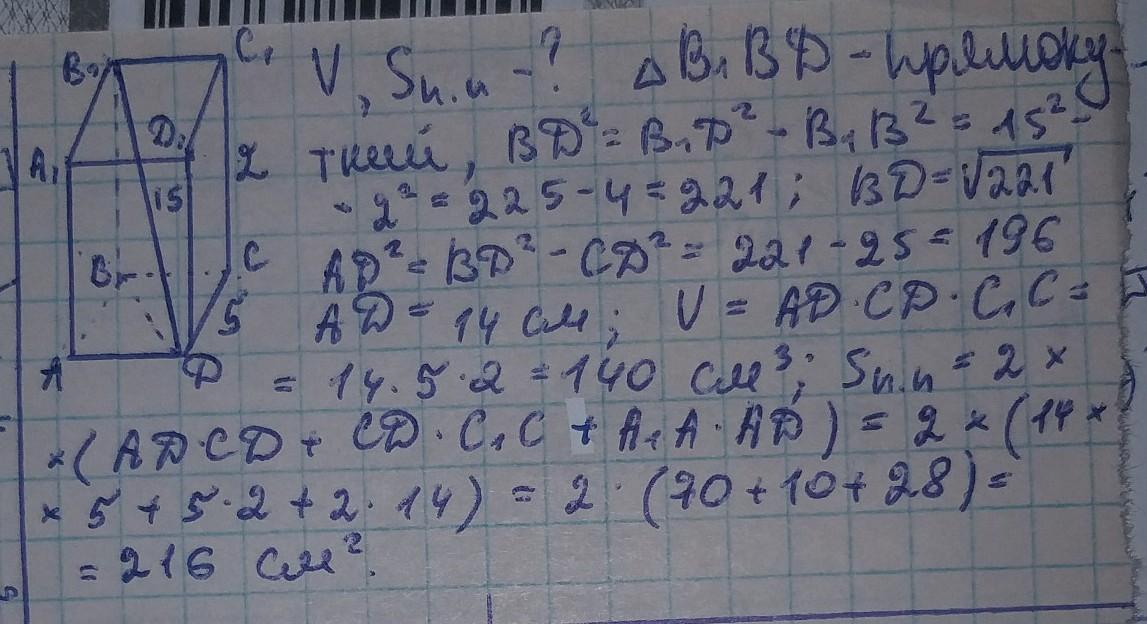 B₁ C₁
V, Sп.п - ? Δ B₁BD - прямоку-
D₁
A₁ 2 тний, BD² = B₁D² - B₁B² = 15² -
15 - 2² = 225 - 4 = 221; BD = √221
B C AD² = BD² - CD² = 221 - 25 = 196
5 AD = 14 см; V = AD · CD · C₁C =
A D = 14 · 5 · 2 = 140 см³; Sп.п = 2 ×
× (AD·CD + CD · C₁C + A₁A · AD) = 2 × (14 ×
× 5 + 5 · 2 + 2 · 14) = 2 · (70 + 10 + 28) =
= 216 см².